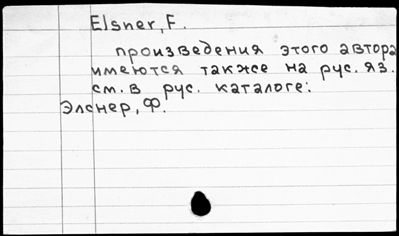 Elsner, F.
произведения этого автора
имеются также на рус. яз.
см. в рус. каталоге:
Элснер, Ф.